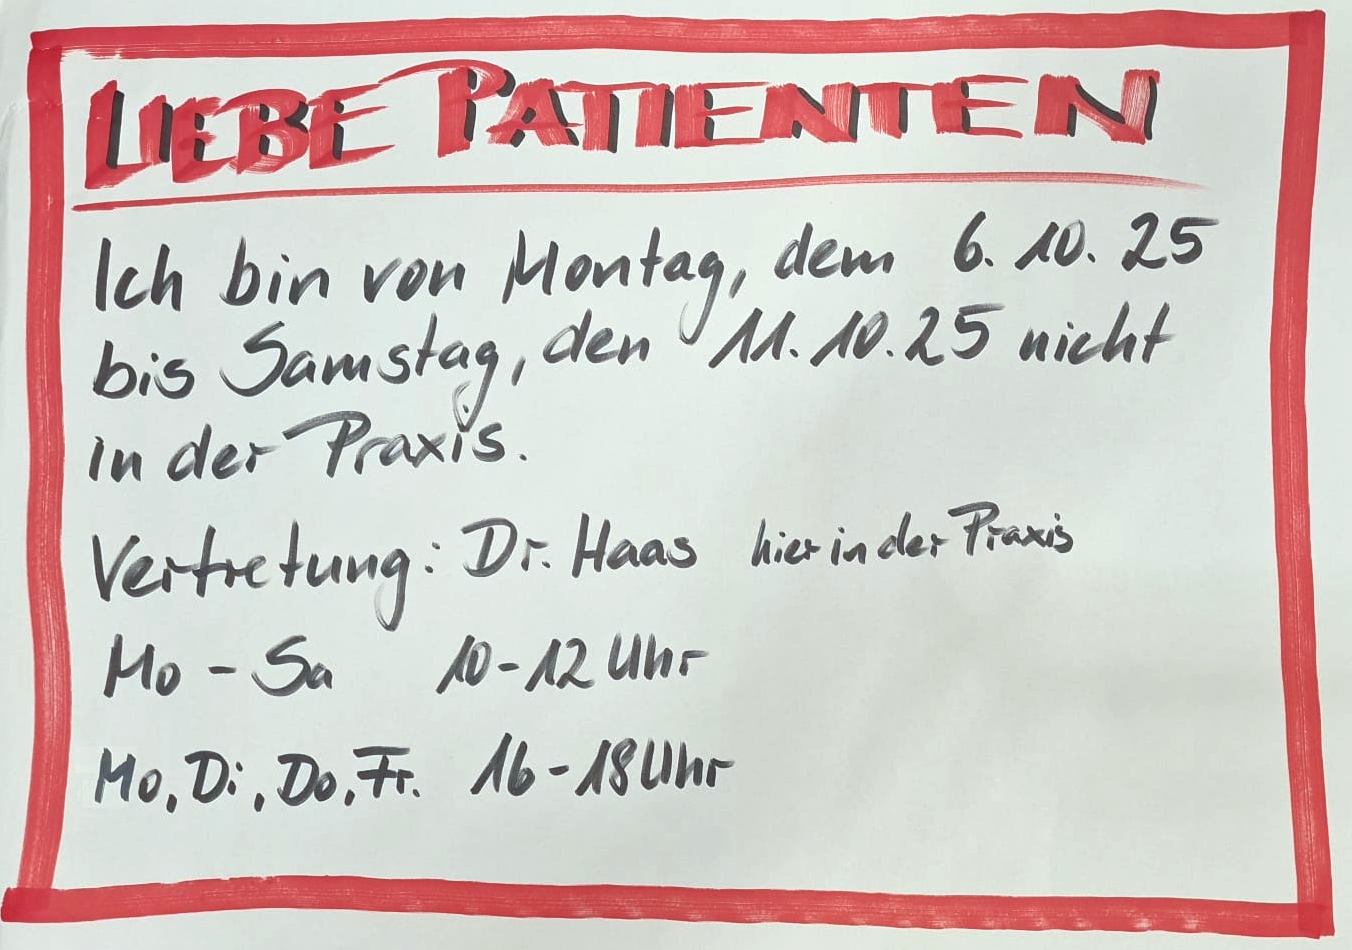 LIEBE PATIENTEN
Ich bin von Montag, dem 6.10.25
bis Samstag, den 11.10.25 nicht
in der Praxis.
Vertretung: Dr. Haas hier in der Praxis
Mo - Sa 10-12 Uhr
Mo, Di, Do, Fr. 16-18 Uhr